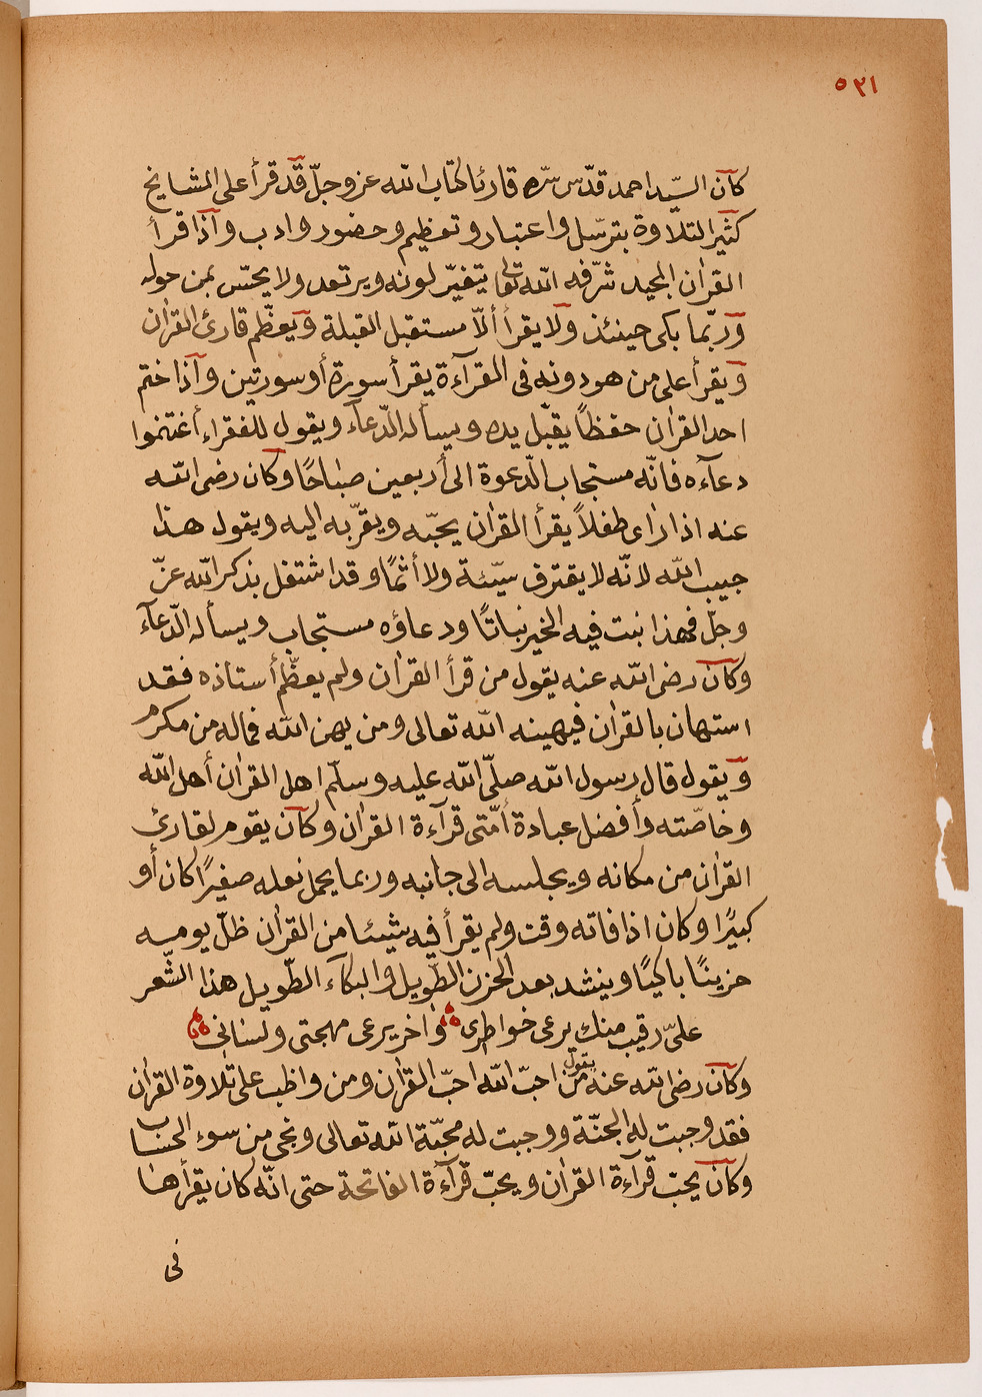 ٥٣١
كان السّيد احمد قدّس سرّه قارئا لكتاب الله عز وجلّ قد قرأ على المشايخ
كثير التلاوة بترسّل واعتبار وتعظيم وحضور وادب واذا قرأ
القرأن المجيد شرّفه الله تعالى يتغيّر لونه ويرتعد ولا يحسّ بمن حوله
وربّما بكى حينئذ ولا يقرأ ألاّ مستقبل القبلة ويعظّم قارئ القرأن
ويقرأ على من هو دونه فى القرآءة يقرأ سورة أو سورتين واذا ختم
احد القرأن حفظاً يقبّل يده ويسأله الدّعآء ويقول للفقراء أغتنموا
دعآءه فانّه مستجاب الّدعوة الى أربعين صباحًا وكان رضى الله
عنه اذا رأى طفلاً يقرأ القرأن يحبّه ويقرّبه اليه ويقول هذا
حبيب الله لانّه لا يقترف سيّئة ولا أثمًا وقد اشتغل بذكر الله عزّ
وجلّ فهذا نبت فيه الخير نباتًا ودعاؤه مستجاب ويسأله الدّعآء
وكان رضى الله عنه يقول من قرأ القرأن ولم يعظّم أستاذه فقد
استهان بالقرأن فيهينه الله تعالى ومن يهن الله فماله من مكرم
ويقول قال رسول الله صلّى الله عليه وسلّم اهل القرأن أهل الله
وخاصّته وأفضل عبادة أمّتى قرآءة القرأن وكان يقوم لقارئ
القرأن من مكانه ويجلسه الى جانبه وربما يحمل نعله صغيرًا كان أو
كبيرًا وكان اذا فاته وقت ولم يقرأ فيه شيئا من القرأن ظلّ يومه
حزينًا باكيًا وينشد بعد الحزن الطّويل والبكآء الطّويل هذا الشّعر
علىّ رقيب منك يرعى خواطرى وأخر يرعى مهجتى ولسانى
وكان رضى الله عنه يقول من احبّ الله احبّ القرأن ومن واظب على تلاوة القرأن
فقد وجبت له الجنّة ووجبت له محبّة الله تعالى ونجى من سوء الحساب
وكان يحبّ قرآءة القرأن ويحبّ قرآءة الفاتحة حتى انّه كان يقرأها
فى